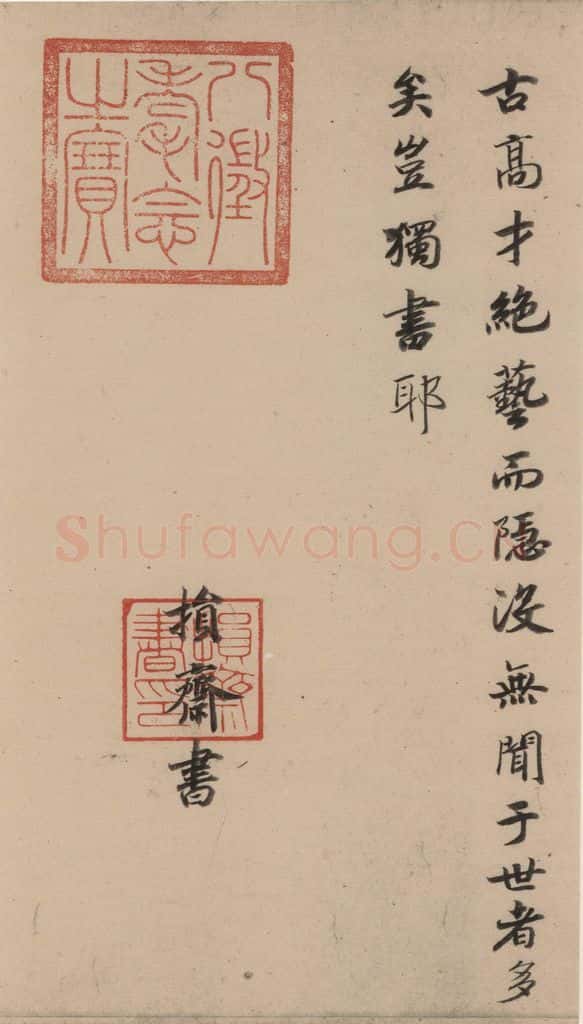 古髙才絶藝而隱没無聞于世者多
矣豈獨書耶
八徵
耄念
之寶
損齋書
損齋
書印
Shufawang.c